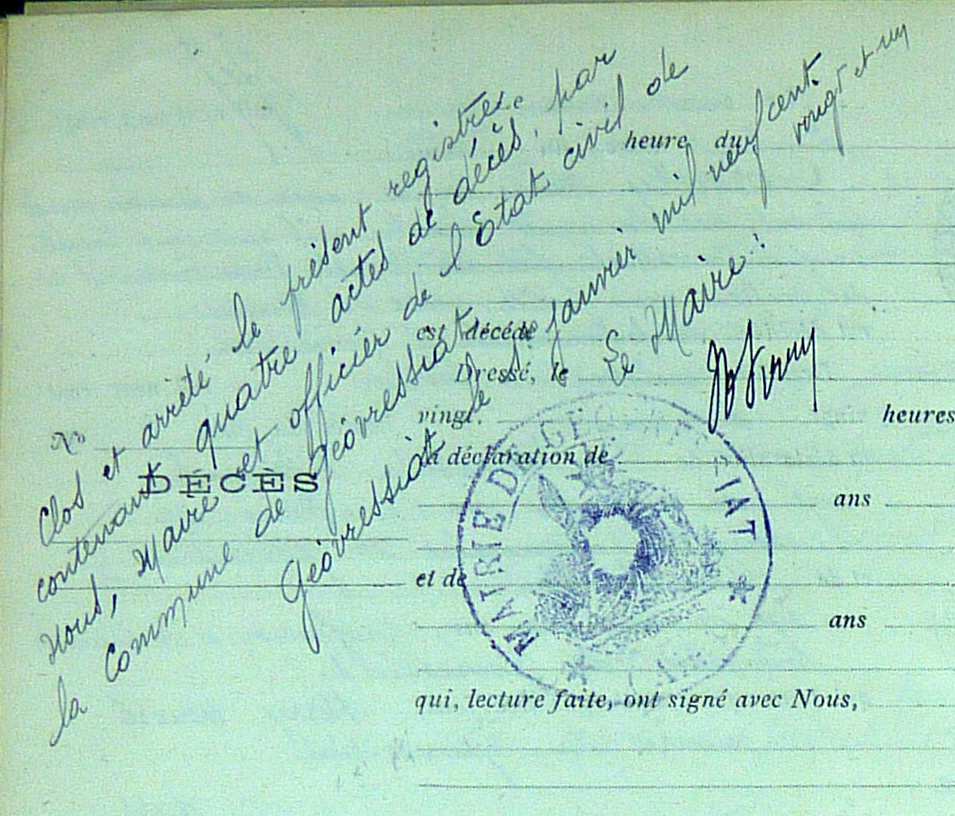 Clos et arrêté le présent registre
contenant quatre actes de décès, par
Nous, Maire et officier de l'Etat civil de
la Commune de Géovressiat.
Géovressiat le janvier mil neuf cent.
vingt et un
Le Maire:
heure du
est décédé
Dressé, le
vingt.
heures
DÉCÈS
la déclaration de
ans
et de
ans
qui, lecture faite, ont signé avec Nous,
MAIRIE DE GEOVRESSIAT
(Ain)